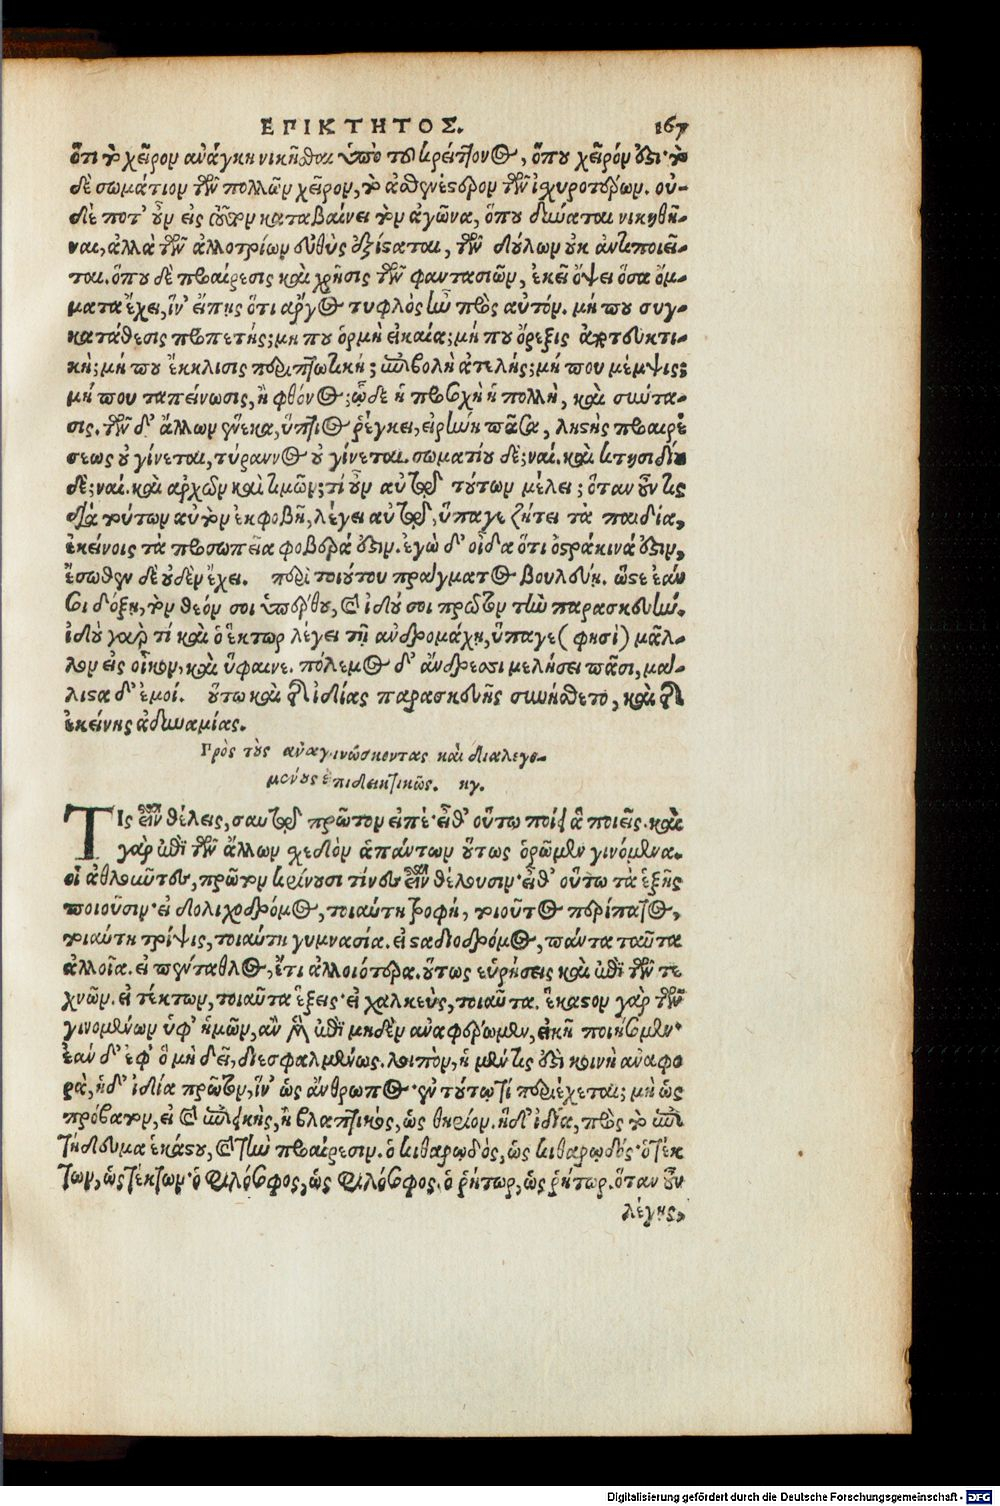 ΕΠΙΚΤΗΤΟΣ. 167
ὅτι τὸ χεῖρον ἀνάγκη νικῆσθαι ὑπὸ τοῦ κρείττονος, ὅπου χεῖρόν ἐστι· τὸ
δὲ σωμάτιον τῶν πολλῶν χεῖρον, τὸ ἀσθενέστερον τῶν ἰσχυροτέρων. οὐ-
δέ ποτ' οὖν εἰς τοῦτον καταβαίνει τὸν ἀγῶνα, ὅπου δύναται νικηθῆ-
ναι, ἀλλὰ τῶν ἀλλοτρίων εὐθὺς ἐξίσαται, τῶν δούλων οὐκ ἀντιποιεῖ-
ται. ὅπου δὲ προαίρεσις καὶ χρῆσις τῶν φαντασιῶν, ἐκεῖ ὄψει ὅσα ὄμ-
ματα ἔχει, ἵν' εἴπῃς ὅτι ἄργος τυφλὸς ἦν πρὸς αὐτόν. μή που συγ-
κατάθεσις προπετής; μή που ὁρμὴ εἰκαία; μή που ὄρεξις ἀποτευκτι-
κή; μή που ἔκκλισις περιπτωτική; ἐπιβολὴ ἀτελής; μή που μέμψις;
μή που ταπείνωσις, ἢ φθόνος; ὧδε ἡ προσοχὴ ἡ πολλή, καὶ σύντα-
σις. τῶν δ' ἄλλων ἕνεκα, ὕπτιος ῥέγκει, εἰρήνη πᾶσα, λῃστὴς προαιρέ
σεως οὐ γίνεται, τύραννος οὐ γίνεται. σωματίου δέ; ναί. καὶ κτησιδίου
δέ; ναί. καὶ ἀρχῶν καὶ τιμῶν; τί οὖν αὐτῷ τούτων μέλει; ὅταν οὖν τις
διὰ τούτων αὐτὸν ἐκφοβῇ, λέγει αὐτῷ, ὕπαγε ζήτει τὰ παιδία,
ἐκείνοις τὰ προσωπεῖα φοβερά ἐστιν. ἐγὼ δ' οἶδα ὅτι ὀστράκινά ἐστιν,
ἔσωθεν δὲ οὐδὲν ἔχει. περὶ τοιούτου πράγματος βουλεύῃ. ὥστε ἐάν
σοι δόξῃ, τὸν θεόν σοι ὑπερθοῦ, καὶ ἰδού σοι πρῶτον τὴν παρασκευήν.
ἰδοὺ γὰρ τί καὶ ὁ ἕκτωρ λέγει τῇ ἀνδρομάχῃ, ὕπαγε (φησὶ) μᾶλ-
λον εἰς οἶκον, καὶ ὕφαινε. πόλεμος δ' ἄνδρεσσι μελήσει πᾶσι, μά-
λιστα δ' ἐμοί. οὕτω καὶ τῆς ἰδίας παρασκευῆς συνῄσθετο, καὶ τῆς
ἐκείνης ἀδυναμίας.
Πρὸς τοὺς ἀναγινώσκοντας καὶ διαλεγο-
μένους ἐπιδεικτικῶς. κγ.
ΤΙς εἶναι θέλεις, σαυτῷ πρῶτον εἰπέ· εἶθ' οὕτω ποίει ἃ ποιεῖς. καὶ
γὰρ ἐπὶ τῶν ἄλλων σχεδὸν ἁπάντων οὕτως ὁρῶμεν γινόμενα.
οἱ ἀθλοῦντες, πρῶτον κρίνουσι τίνες εἶναι θέλουσιν· εἶθ' οὕτω τὰ ἑξῆς
ποιοῦσιν· εἰ δολιχοδρόμος, τοιαύτη τροφή, τοιοῦτος περίπατος,
τοιαύτη τρίψις, τοιαύτη γυμνασία. εἰ σταδιοδρόμος, πάντα ταῦτα
ἀλλοῖα. εἰ πένταθλος, ἔτι ἀλλοιότερα. οὕτως εὑρήσεις καὶ ἐπὶ τῶν τε
χνῶν. εἰ τέκτων, τοιαῦτα ἕξεις· εἰ χαλκεὺς, τοιαῦτα. ἕκαστον γὰρ τῶν
γινομένων ὑφ' ἡμῶν, ἂν μὲν ἐπὶ μηδὲν ἀναφέρωμεν, εἰκῇ ποιήσομεν·
ἐὰν δ' ἐφ' ὃ μὴ δεῖ, διεσφαλμένως. λοιπὸν, ἡ μέν τις ἐστὶ κοινὴ ἀναφο
ρὰ, ἡ δ' ἰδία πρῶτον, ἵν' ὡς ἄνθρωπος· ἐν τούτῳ τί περιέχεται; μὴ ὡς
πρόβατον, εἰ καὶ ἐπιεικής, ἢ βλαπτικὸς, ὡς θηρίον. ἡ δ' ἰδία, πρὸς τὸ ἐπι
τήδευμα ἑκάστου, καὶ τὴν προαίρεσιν. ὁ κιθαρῳδὸς, ὡς κιθαρῳδός· ὁ τέκ
των, ὡς τέκτων· ὁ φιλόσοφος, ὡς φιλόσοφος. ὁ ῥήτωρ, ὡς ῥήτωρ. ὅταν οὖν
λέγῃς,
Digitalisierung gefördert durch die Deutsche Forschungsgemeinschaft - DFG